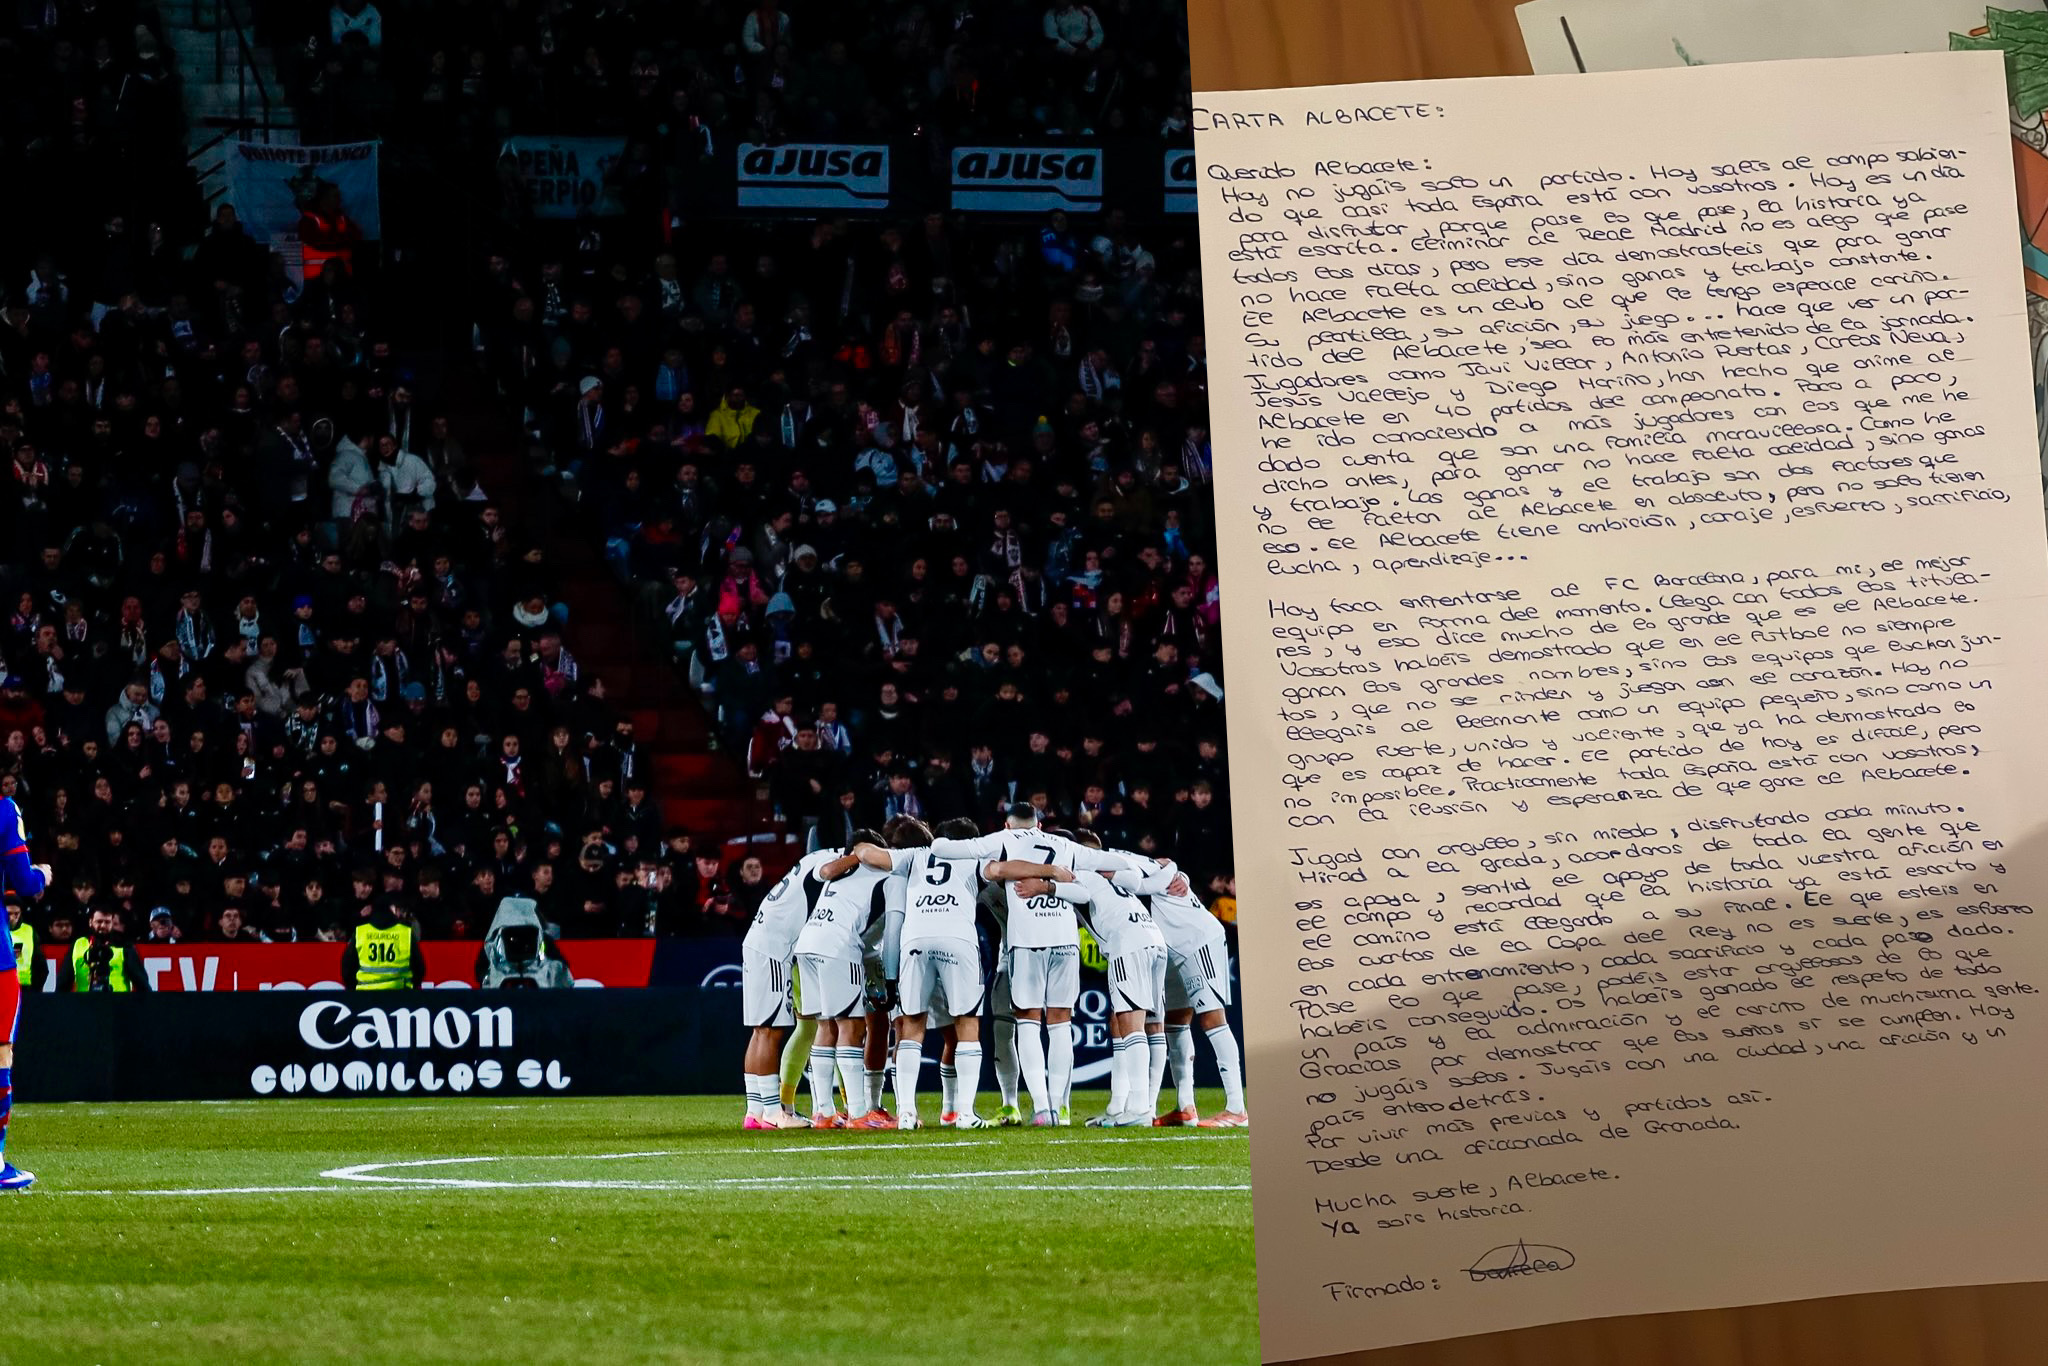 QUIJOTE BLANCO
PEÑA
ajusa
ajusa
5
7
iner
ENERGÍA
iner
ENERGÍA
iner
CASTILLA
LA MANCHA
SEGURIDAD
316
TV
Canon
CHUMILLAS SL
CARTA ALBACETE:
Querido Albacete:
Hoy no jugáis solo un partido. Hoy salís al campo sabien-
do que casi toda España está con vosotros. Hoy es un día
para disfrutar, porque pase lo que pase, la historia ya
está escrita. Eliminar al Real Madrid no es algo que pase
todos los días, pero ese día demostrasteis que para ganar
no hace falta calidad, sino ganas y trabajo constante.
El Albacete es un club al que le tengo especial cariño.
Su plantilla, su afición, su juego... hace que ver un par-
tido del Albacete, sea lo más entretenido de la jornada.
Jugadores como Javi Villar, Antonio Puertas, Carlos Neva,
Jesús Vallejo y Diego Mariño, han hecho que anime al
Albacete en 40 partidos del campeonato. Poco a poco,
he ido conociendo a más jugadores con los que me he
dado cuenta que son una familia maravillosa. Como he
dicho antes, para ganar no hace falta calidad, sino ganas
y trabajo. Las ganas y el trabajo son dos factores que
no le faltan al Albacete en absoluto, pero no solo tienen
eso. El Albacete tiene ambición, coraje, esfuerzo, sacrificio,
lucha, aprendizaje...
Hoy toca enfrentarse al FC Barcelona, para mi, el mejor
equipo en forma del momento. Llega con todos los titula-
res, y eso dice mucho de lo grande que es el Albacete.
Vosotros habéis demostrado que en el fútbol no siempre
ganan los grandes nombres, sino los equipos que luchan jun-
tos, que no se rinden y juegan con el corazón. Hoy no
llegáis al Belmonte como un equipo pequeño, sino como un
grupo fuerte, unido y valiente, que ya ha demostrado lo
que es capaz de hacer. El partido de hoy es difícil, pero
no imposible. Practicamente toda España está con vosotros,
con la ilusión y esperanza de que gane el Albacete.
Jugad con orgullo, sin miedo, disfrutando cada minuto.
Mirad a la grada, acordaros de toda la gente que
os apoya, sentid el apoyo de toda vuestra afición en
el campo y recordad que la historia ya está escrito y
el camino está llegando a su final. El que esteis en
los cuartos de la Copa del Rey no es suerte, es esfuerzo
en cada entrenamiento, cada sacrificio y cada paso dado.
Pase lo que pase, podéis estar orgullosos de lo que
habéis conseguido. Os habéis ganado el respeto de todo
un país y la admiración y el cariño de muchísima gente.
Gracias por demostrar que los sueños sí se cumplen. Hoy
no jugáis solos. Jugáis con una ciudad, una afición y un
país entero detrás.
Por vivir más previas y partidos así.
Desde una aficionada de Granada.
Mucha suerte, Albacete.
Ya sois historia.
Firmado: